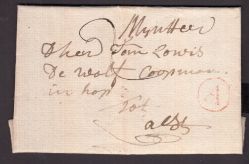 Mynheer
Dheer Jan Lowis
De Wolf Coopman
in hop
tot
aelst
A